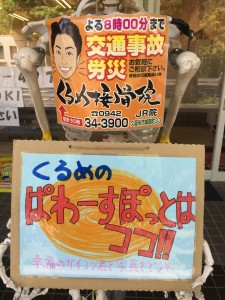 よる8時00分まで
交通事故
労災
お気軽に
ご相談下さい。
くるめ接骨院
☎0942
34-3900
JR院
くるめの
ぱわーすぽっとは
ココ!!
幸福のガイコツ君と写真をどうぞ